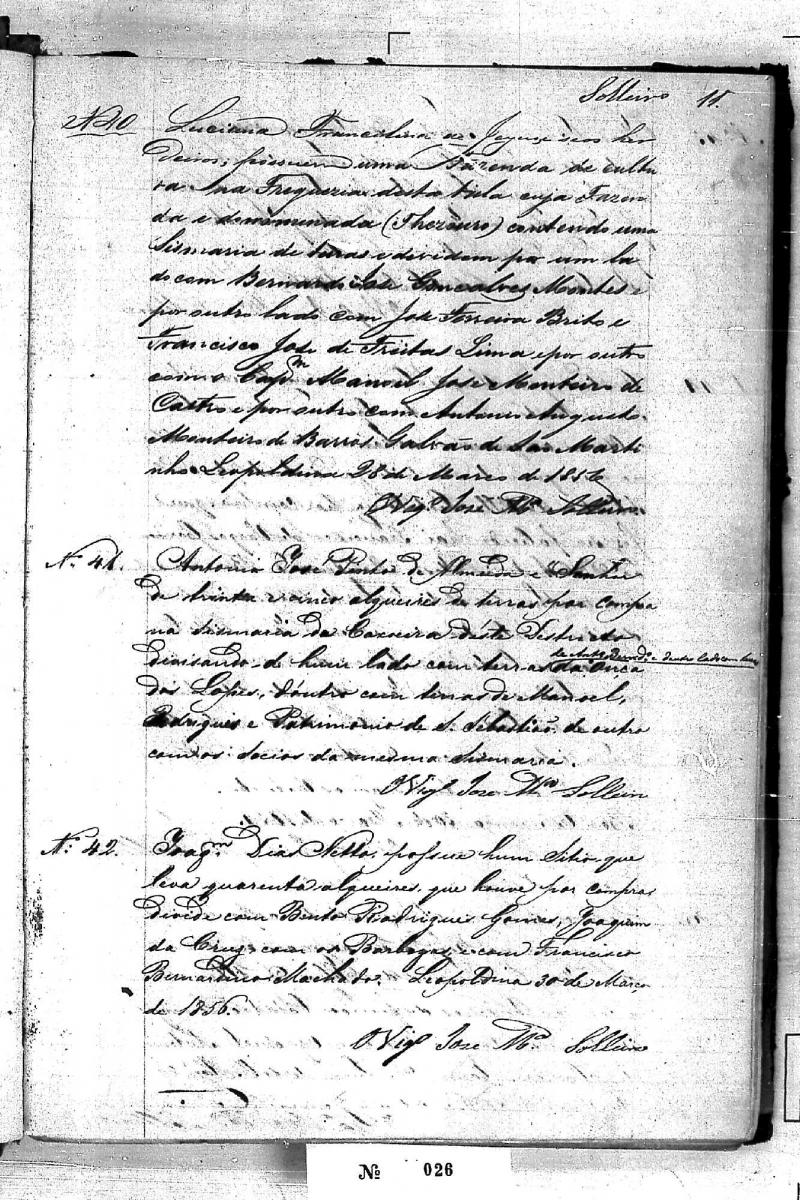 Solleiro 11.
N 40 Luciana Francelina de Jezus e seos her
deiros, possuem uma Fazenda de cultu
ra na Freguezia desta villa cuja Fazen
da e denominada (Thezouro) contendo uma
Sismaria de terras e dividem por um la
do com Bernardo Jose Gonçalves Montes e
por outro lado com Jose Ferreira Brito e
Francisco Jose de Freitas Lima e por outro
com o Capm Manoel Jose Monteiro de
Castro e por outro com Antonio Augusto
Monteiro de Barros Galvão de São Marti
nho. Leopoldina 28 de Março de 1856
O Vigº Jose Mª Solleiro
N. 41. Antonio Jose Pinto de Almeida e Senhor
de trinta e cinco alqueires de terras por compra
na sismaria da Caxoeira déste Destricto
de Antº e doutro lado com terras
divisando de hum lado com terras da Onça
dos Lopes, d'outro com terras de Manoel
Rodrigues e Patrimonio de S. Sebastião, de outro
com os socios da mesma sismaria.
O Vigº Jose Mª Solleiro
N. 42. Joaqm Dias Netto, possue hum Sitio que
leva quarenta alqueires, que houve por compra
divide com Bento Rodrigues Gomes, Joaquim
da Cruz, com os Barbozas, e com Francisco
Bernardino Machado. Leopoldina 30 de Março
de 1856.
O Vigº Jose Mª Solleiro
Nº 026